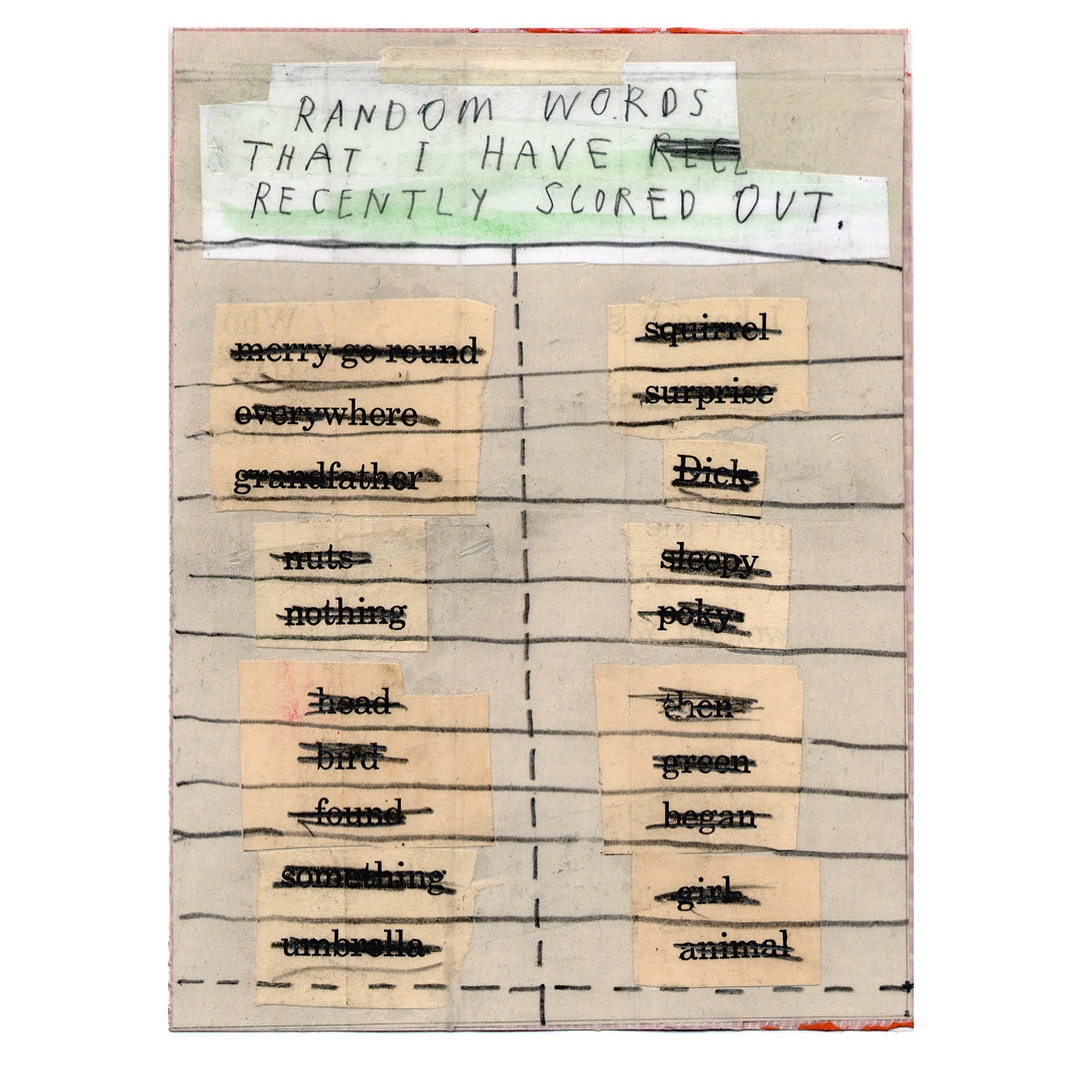 RANDOM WORDS
THAT I HAVE RECE
RECENTLY SCORED OUT.
merry-go-round
everywhere
grandfather
nuts
nothing
head
bird
found
something
umbrella
squirrel
surprise
Dick
sleepy
poky
then
green
began
girl
animal